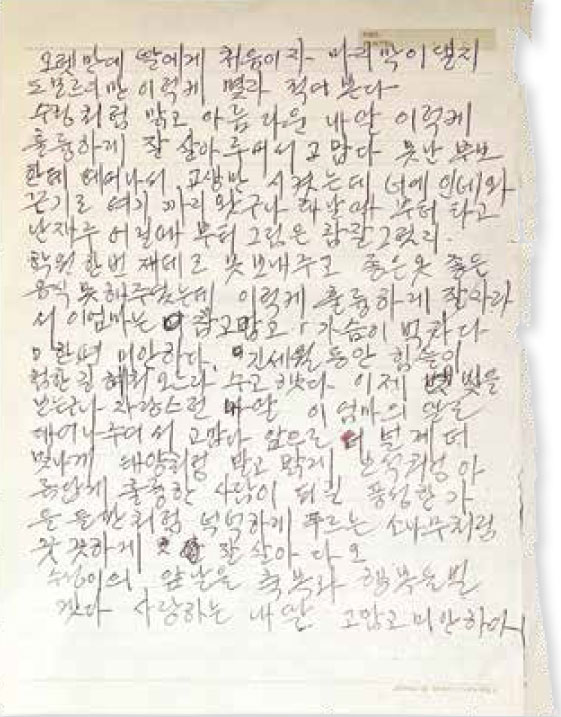 오랫만에 딸에게 처음이자 마지막이 댈지
도모르지만 이렇케 몇자 적어 본다
수정처럼 맑고 아름다운 내 딸 이렇케
훌륭하게 잘 살아주어서 고맙다 못난 부모
한테 태어나서 고생만 시켯는데 너에 인네와
끈기로 여기 까지 왓구나 태날때 부터 타고
난 재주 어릴때 부터 그림은 참 잘 그렷지.
학원 한번 재데로 못 보내주고 좋은 옷 좋은
음식 못해주었는데 이렇게 훌륭하게 잘 자라
서 이 엄마는 참 고맙고 가슴이 벅차다
한편 미안하다. 긴 세월 동안 힘들
험한 길 헤처 오느라 수고 햇다. 이제 빛을
보는구나 자랑스런 내 딸 이 엄마의 딸로
태어나주어서 고맙다 앞으로 더 멋게 더
빛나게 태양처럼 밝고 맑게 보석처럼 아
름답게 훌륭한 사람이 되길 풍성한 가
을 들판처럼 넉넉하게 푸르른 소나무처럼
꿋꿋하게 잘 살아 다오
앞날을 축복과 행복을 빌
겠다 사랑하는 내 딸 고맙고 미안하다